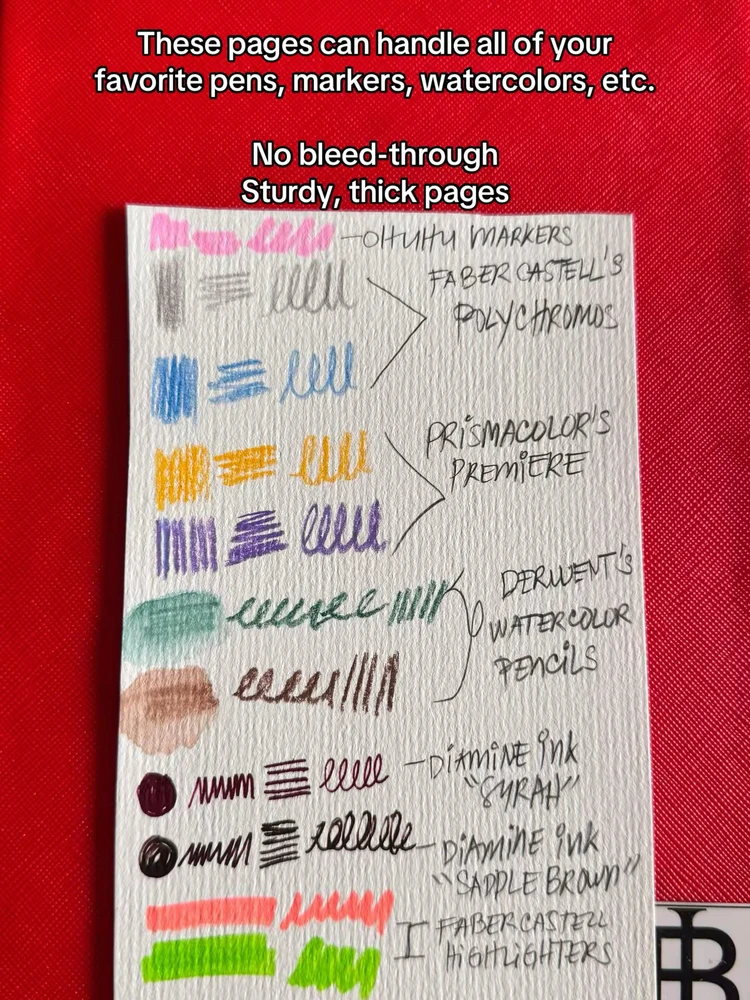 These pages can handle all of your
favorite pens, markers, watercolors, etc.
No bleed-through
Sturdy, thick pages
OHUHU MARKERS
FABER CASTELL'S
POLYCHROMOS
PRISMACOLOR'S
PREMIERE
DERWENT'S
WATERCOLOR
PENCILS
DIAMINE INK
"SYRAH"
DIAMINE INK
"SADDLE BROWN"
FABER CASTELL
HIGHLIGHTERS